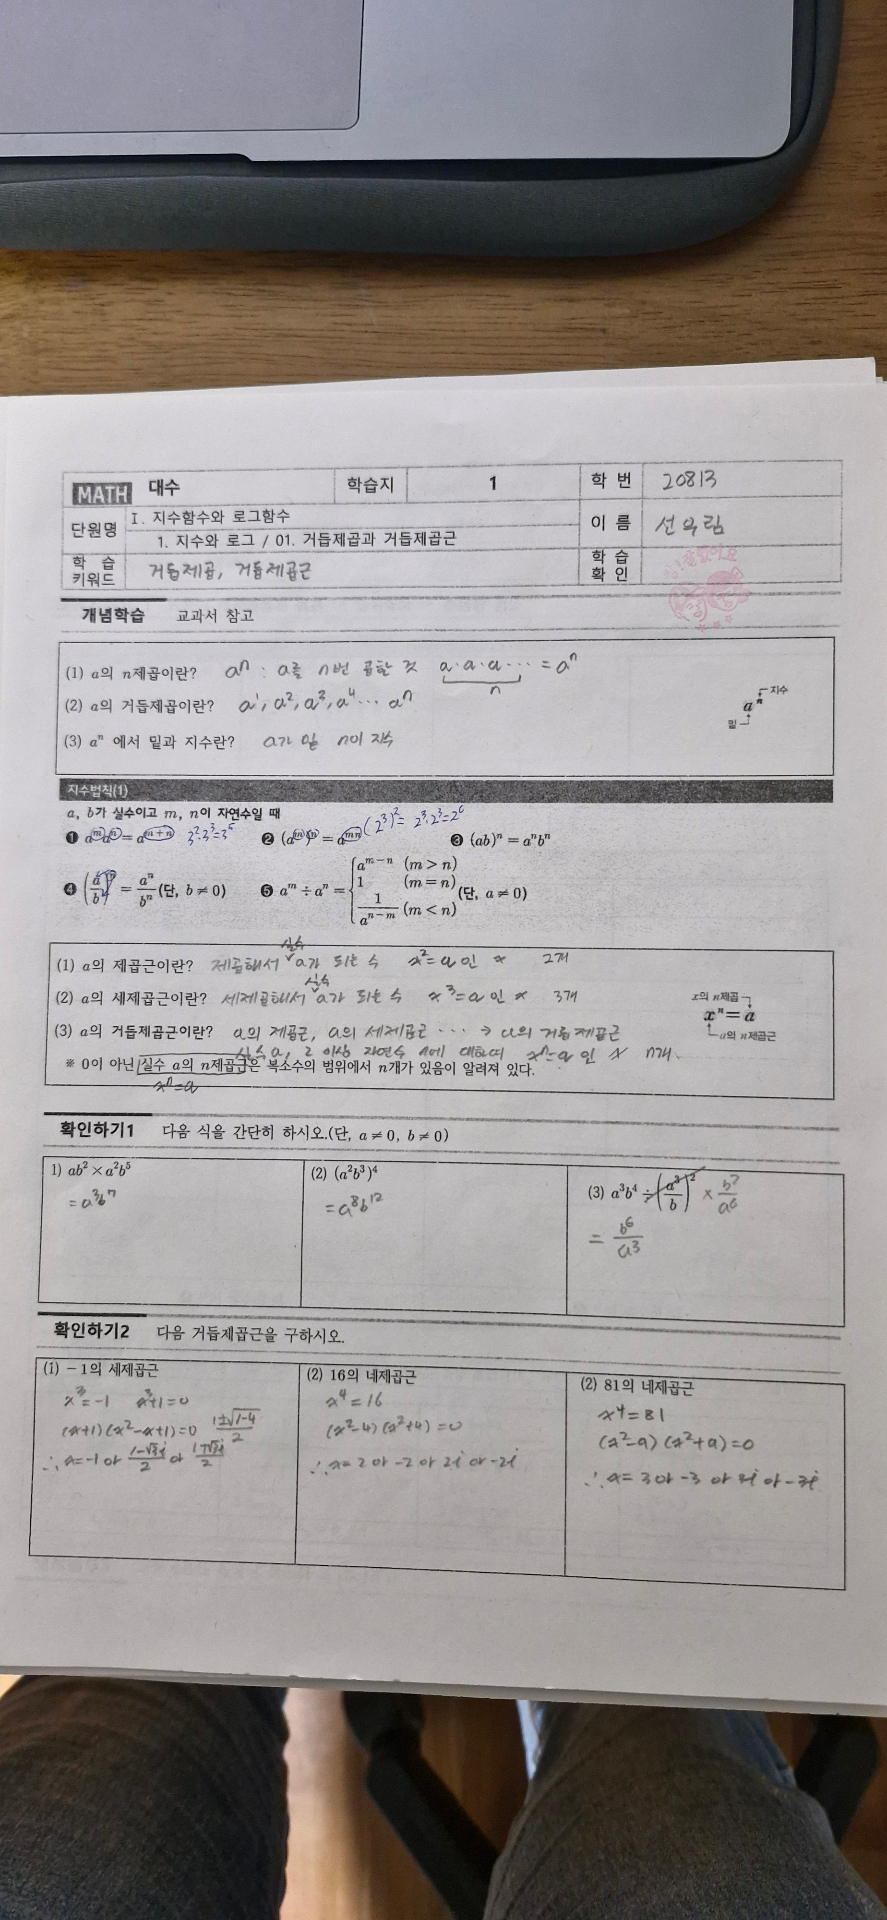 MATH 대수 학습지 1 학 번 20813
단원명 I. 지수함수와 로그함수 이 름
1. 지수와 로그 / 01. 거듭제곱과 거듭제곱근
학 습 키워드 거듭제곱, 거듭제곱근 학 습 확 인
참! 잘했어요
개념학습 교과서 참고
(1) a의 n제곱이란? aⁿ : a를 n번 곱한 것 a·a·a··· = aⁿ
n
(2) a의 거듭제곱이란? a¹, a², a³, a⁴ ··· aⁿ
(3) aⁿ 에서 밑과 지수란? a가 밑 n이 지수
지수
aⁿ
밑
지수법칙(1)
a, b가 실수이고 m, n이 자연수일 때
❶ aᵐaⁿ = aᵐ⁺ⁿ 3²·3³=3⁵ ❷ (aᵐ)ⁿ = aᵐⁿ (2³)² = 2³·2³=2⁶ ❸ (ab)ⁿ = aⁿbⁿ
❹ (a/b)ⁿ = aⁿ/bⁿ (단, b ≠ 0) ❺ aᵐ ÷ aⁿ = { aᵐ⁻ⁿ (m > n)
1 (m = n) (단, a ≠ 0)
1/aⁿ⁻ᵐ (m < n)
실수
(1) a의 제곱근이란? 제곱해서 a가 되는 수 x²=a인 x 2개
실수
(2) a의 세제곱근이란? 세제곱해서 a가 되는 수 x³=a인 x 3개
(3) a의 거듭제곱근이란? a의 제곱근, a의 세제곱근 ··· → a의 거듭제곱근
실수 a, 2 이상 자연수 n에 대하여 xⁿ=a인 x n개.
※ 0이 아닌 실수 a의 n제곱근은 복소수의 범위에서 n개가 있음이 알려져 있다.
xⁿ=a
x의 n제곱
xⁿ = a
a의 n제곱근
확인하기1 다음 식을 간단히 하시오.(단, a ≠ 0, b ≠ 0)
1) ab² × a²b⁵
= a³b⁷
(2) (a²b³)⁴
= a⁸b¹²
(3) a³b⁴ ÷ (a³/b)² × b²/a⁶
= b⁶/a³
확인하기2 다음 거듭제곱근을 구하시오.
(1) −1의 세제곱근
x³=-1 x³+1=0
(x+1)(x²-x+1)=0 1±√1-4/2
∴ x=-1 or 1-√3i/2 or 1+√3i/2
(2) 16의 네제곱근
x⁴=16
(x²-4)(x²+4)=0
∴ x=2 or -2 or 2i or -2i
(2) 81의 네제곱근
x⁴=81
(x²-9)(x²+9)=0
∴ x=3 or -3 or 3i or -3i